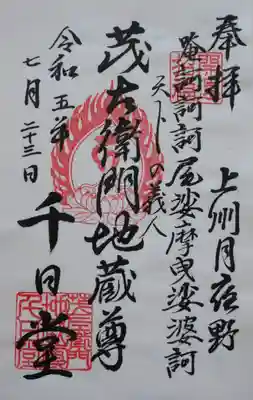 奉拝
上州月夜野
唵訶訶訶尾娑摩曳娑婆訶
天下の義人
茂左衛門地蔵尊
千日堂
令和五年
七月二十三日